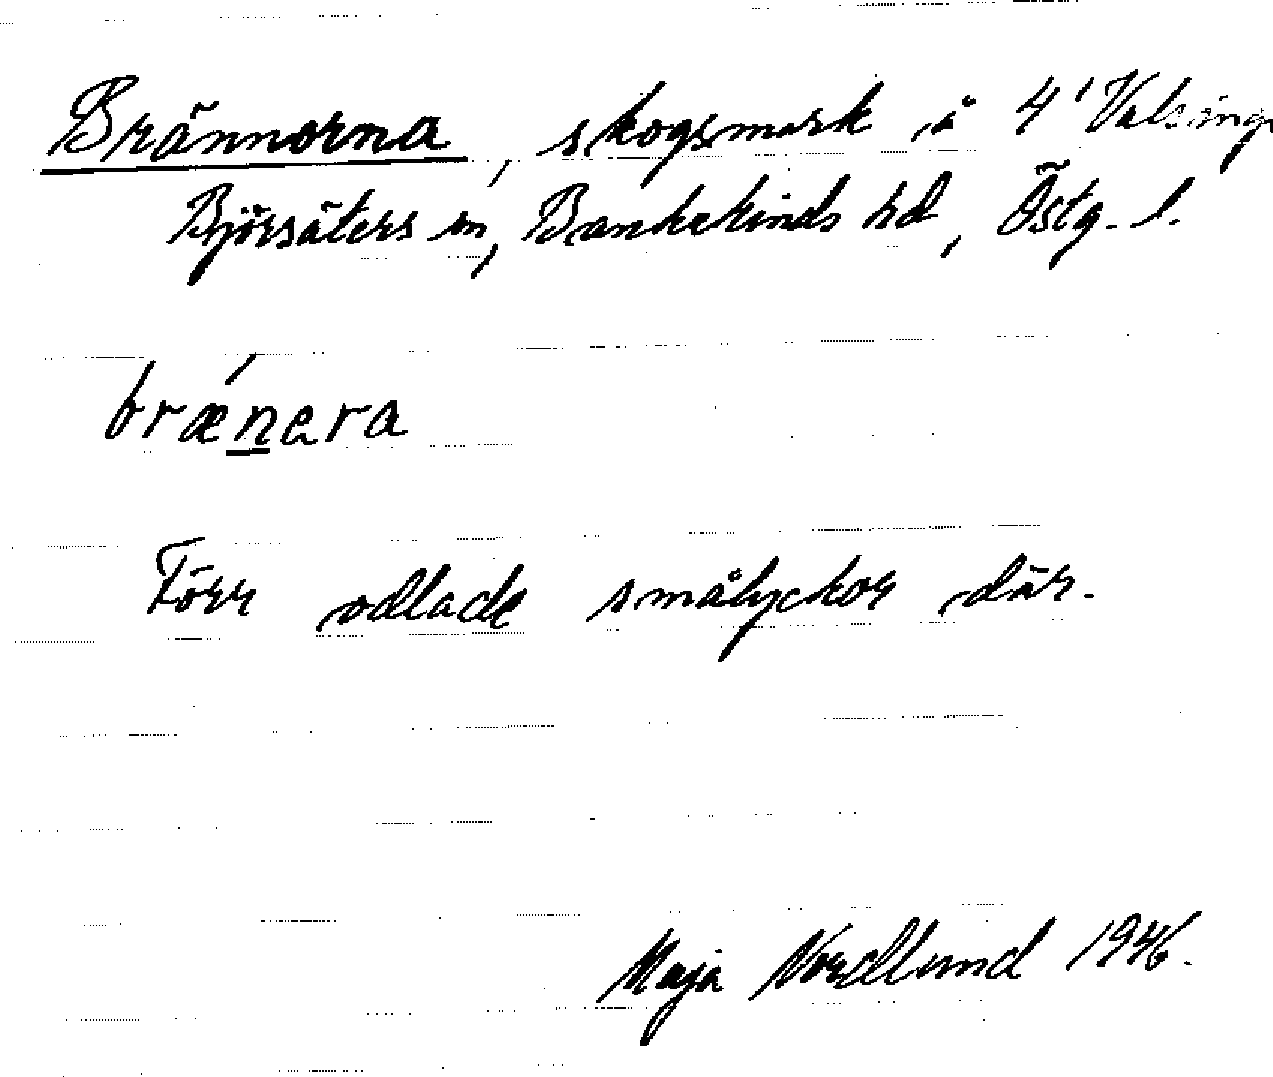 Brännorna, skogsmark å 4' Valsinge
Björsäters sn, Bankekinds hd, Östg. l.
bræ´nera
Förr odlade smålyckor där.
Maja Nordlund 1946.